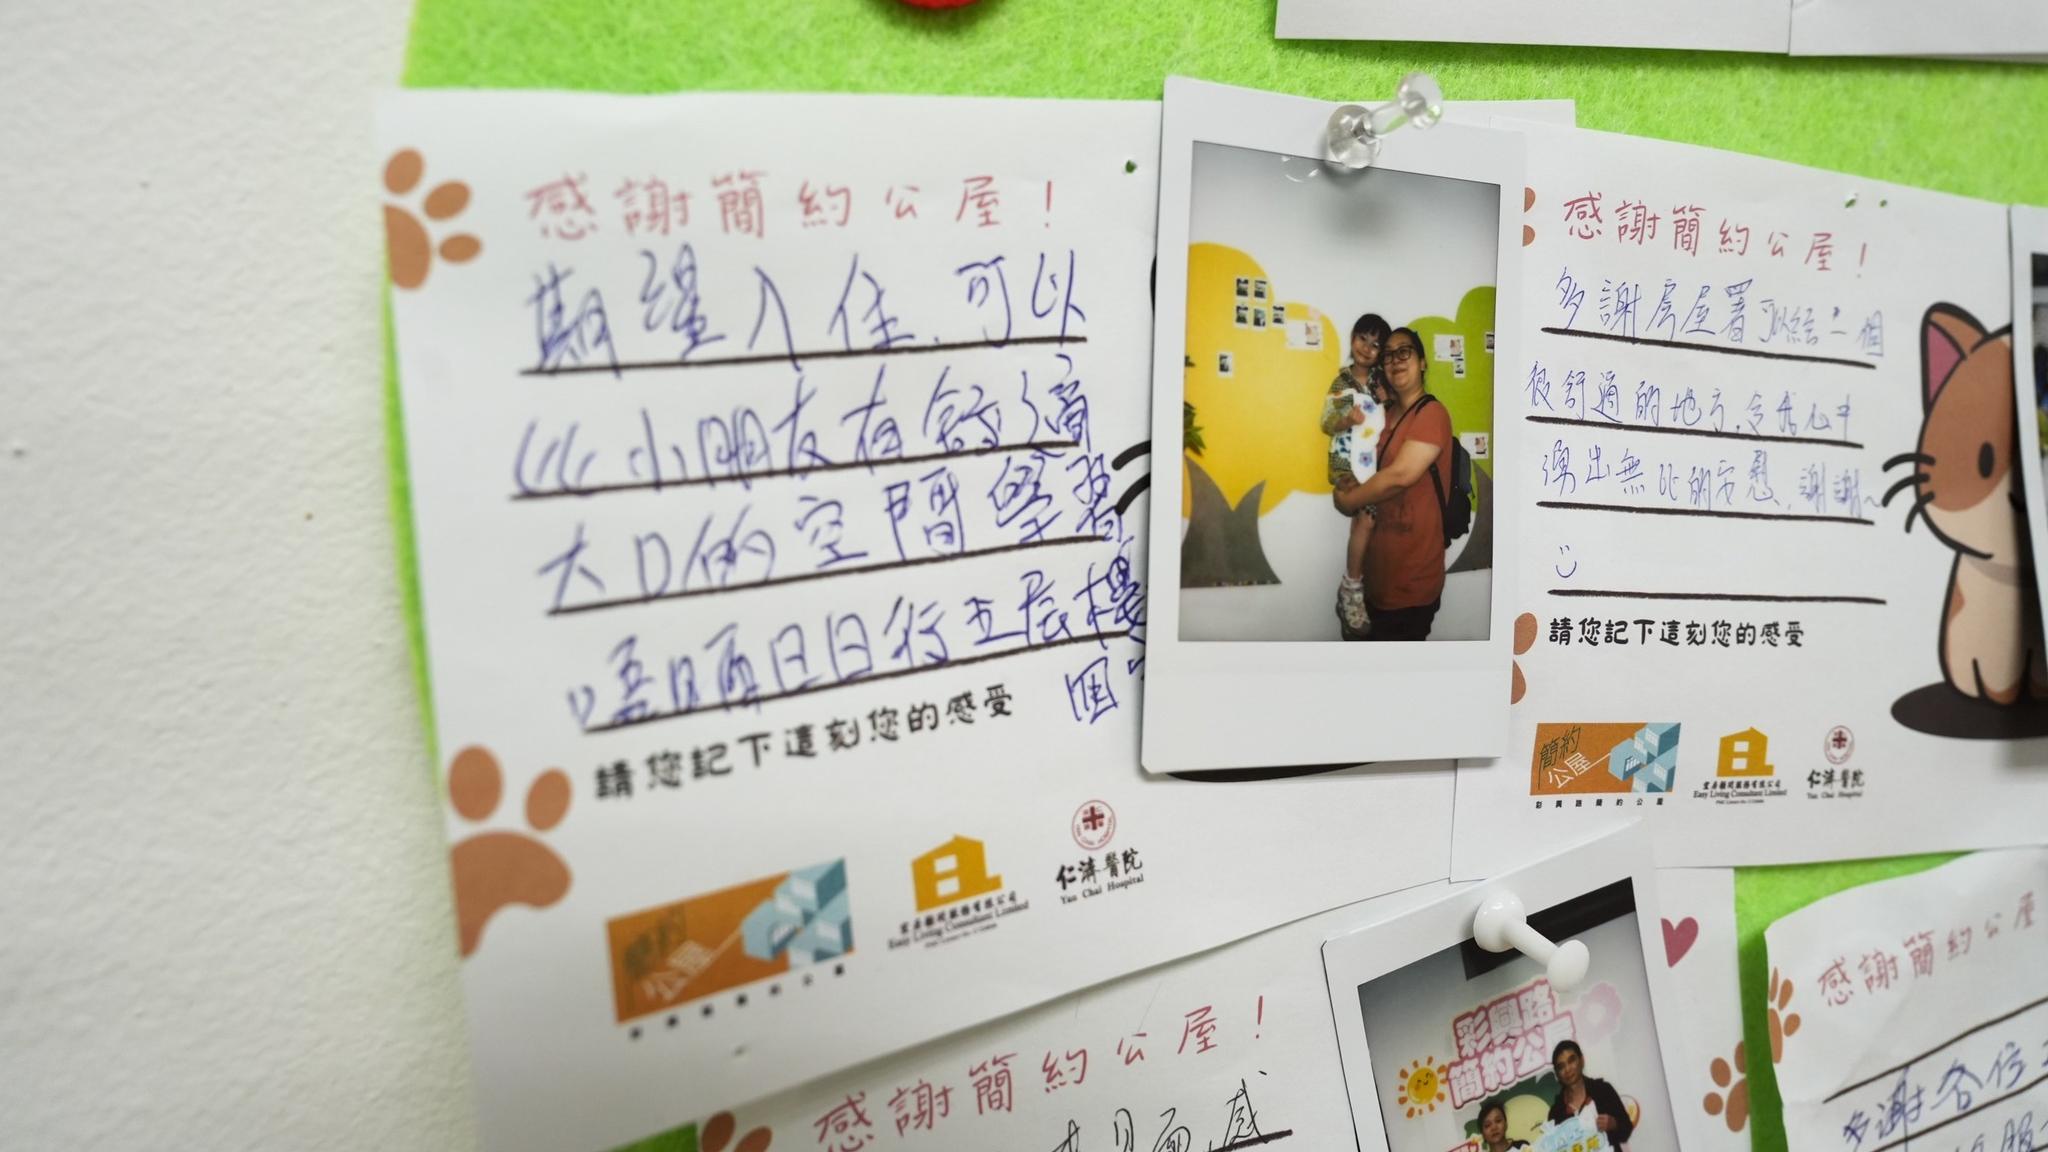 感謝簡約公屋！
期望入住,可以
小朋友有舒適
大D的空間學習
唔使日日行五层樓
個
請您記下這刻您的感受
簡約
公屋
宜居顧問服務有限公司
Easy Living Consultant Limited
仁濟醫院
Yan Chai Hospital
感謝簡約公屋！
多謝房屋署可以給一個
很舒適的地方,令我心中
湧出無比的安慰,謝謝~
請您記下這刻您的感受
簡約
公屋
彩興路簡約公屋
宜居顧問服務有限公司
Easy Living Consultant Limited
仁濟醫院
Yan Chai Hospital
感謝簡約公屋！
感
彩興路
簡約公屋
感謝簡約公屋
多謝各位